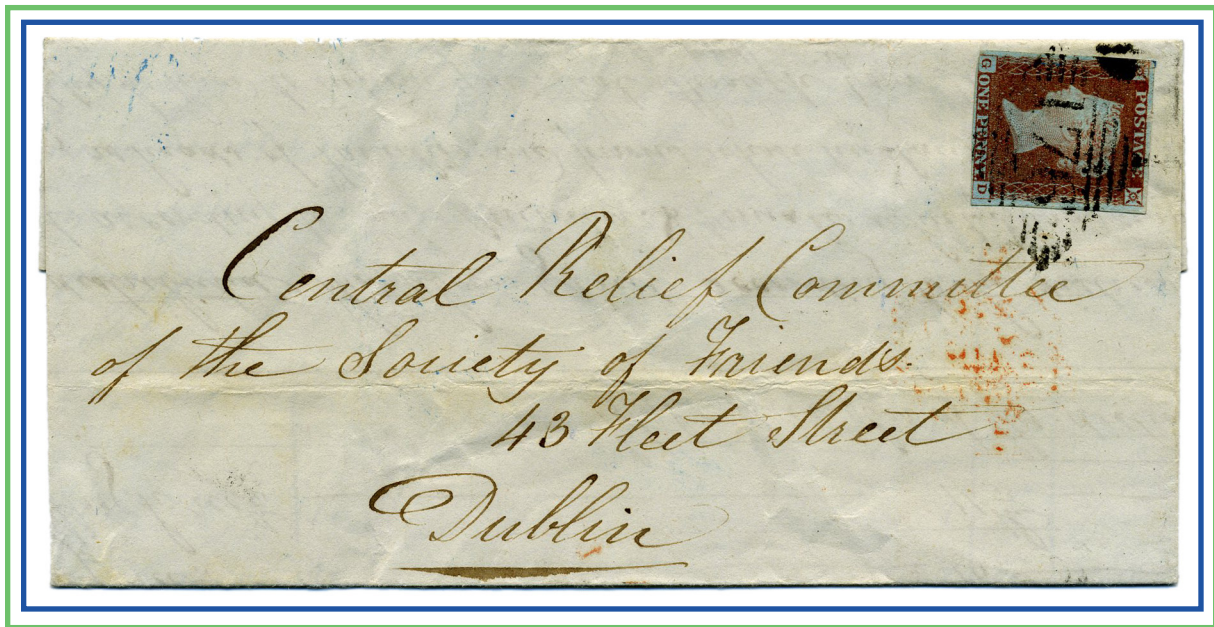 POSTAGE
ONE PENNY
G
D
Central Relief Committee
of the Society of Friends.
43 Fleet Street
Dublin